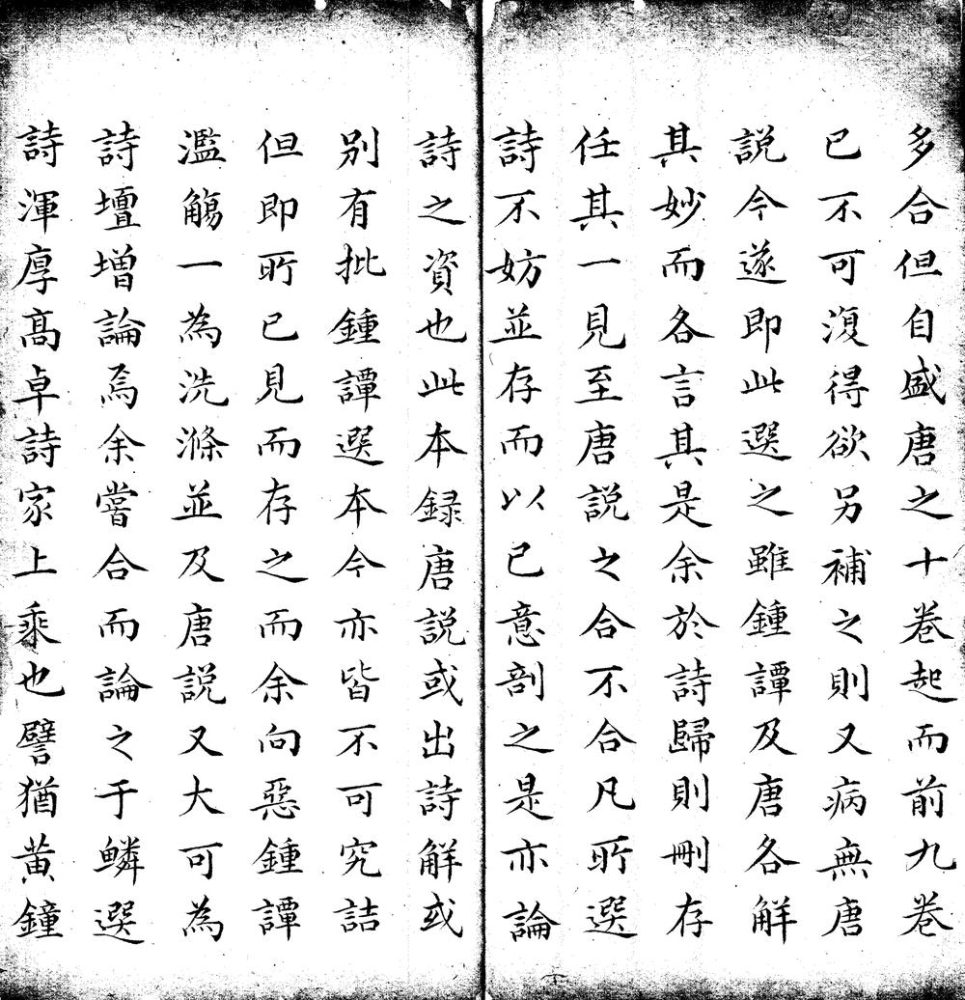 多合但自盛唐之十卷起而前九卷
已不可復得欲另補之則又病無唐
説今遂即此選之雖鍾譚及唐各觧
其妙而各言其是余於詩歸則刪存
任其一見至唐説之合不合凡所選
詩不妨並存而以已意剖之是亦論
詩之資也此本録唐説或出詩觧或
别有批鍾譚選本今亦皆不可究詰
但即所已見而存之而余向惡鍾譚
濫觴一為洗滌並及唐説又大可為
詩壇增論焉余嘗合而論之于鱗選
詩渾厚髙卓詩家上乘也譬猶黄鐘